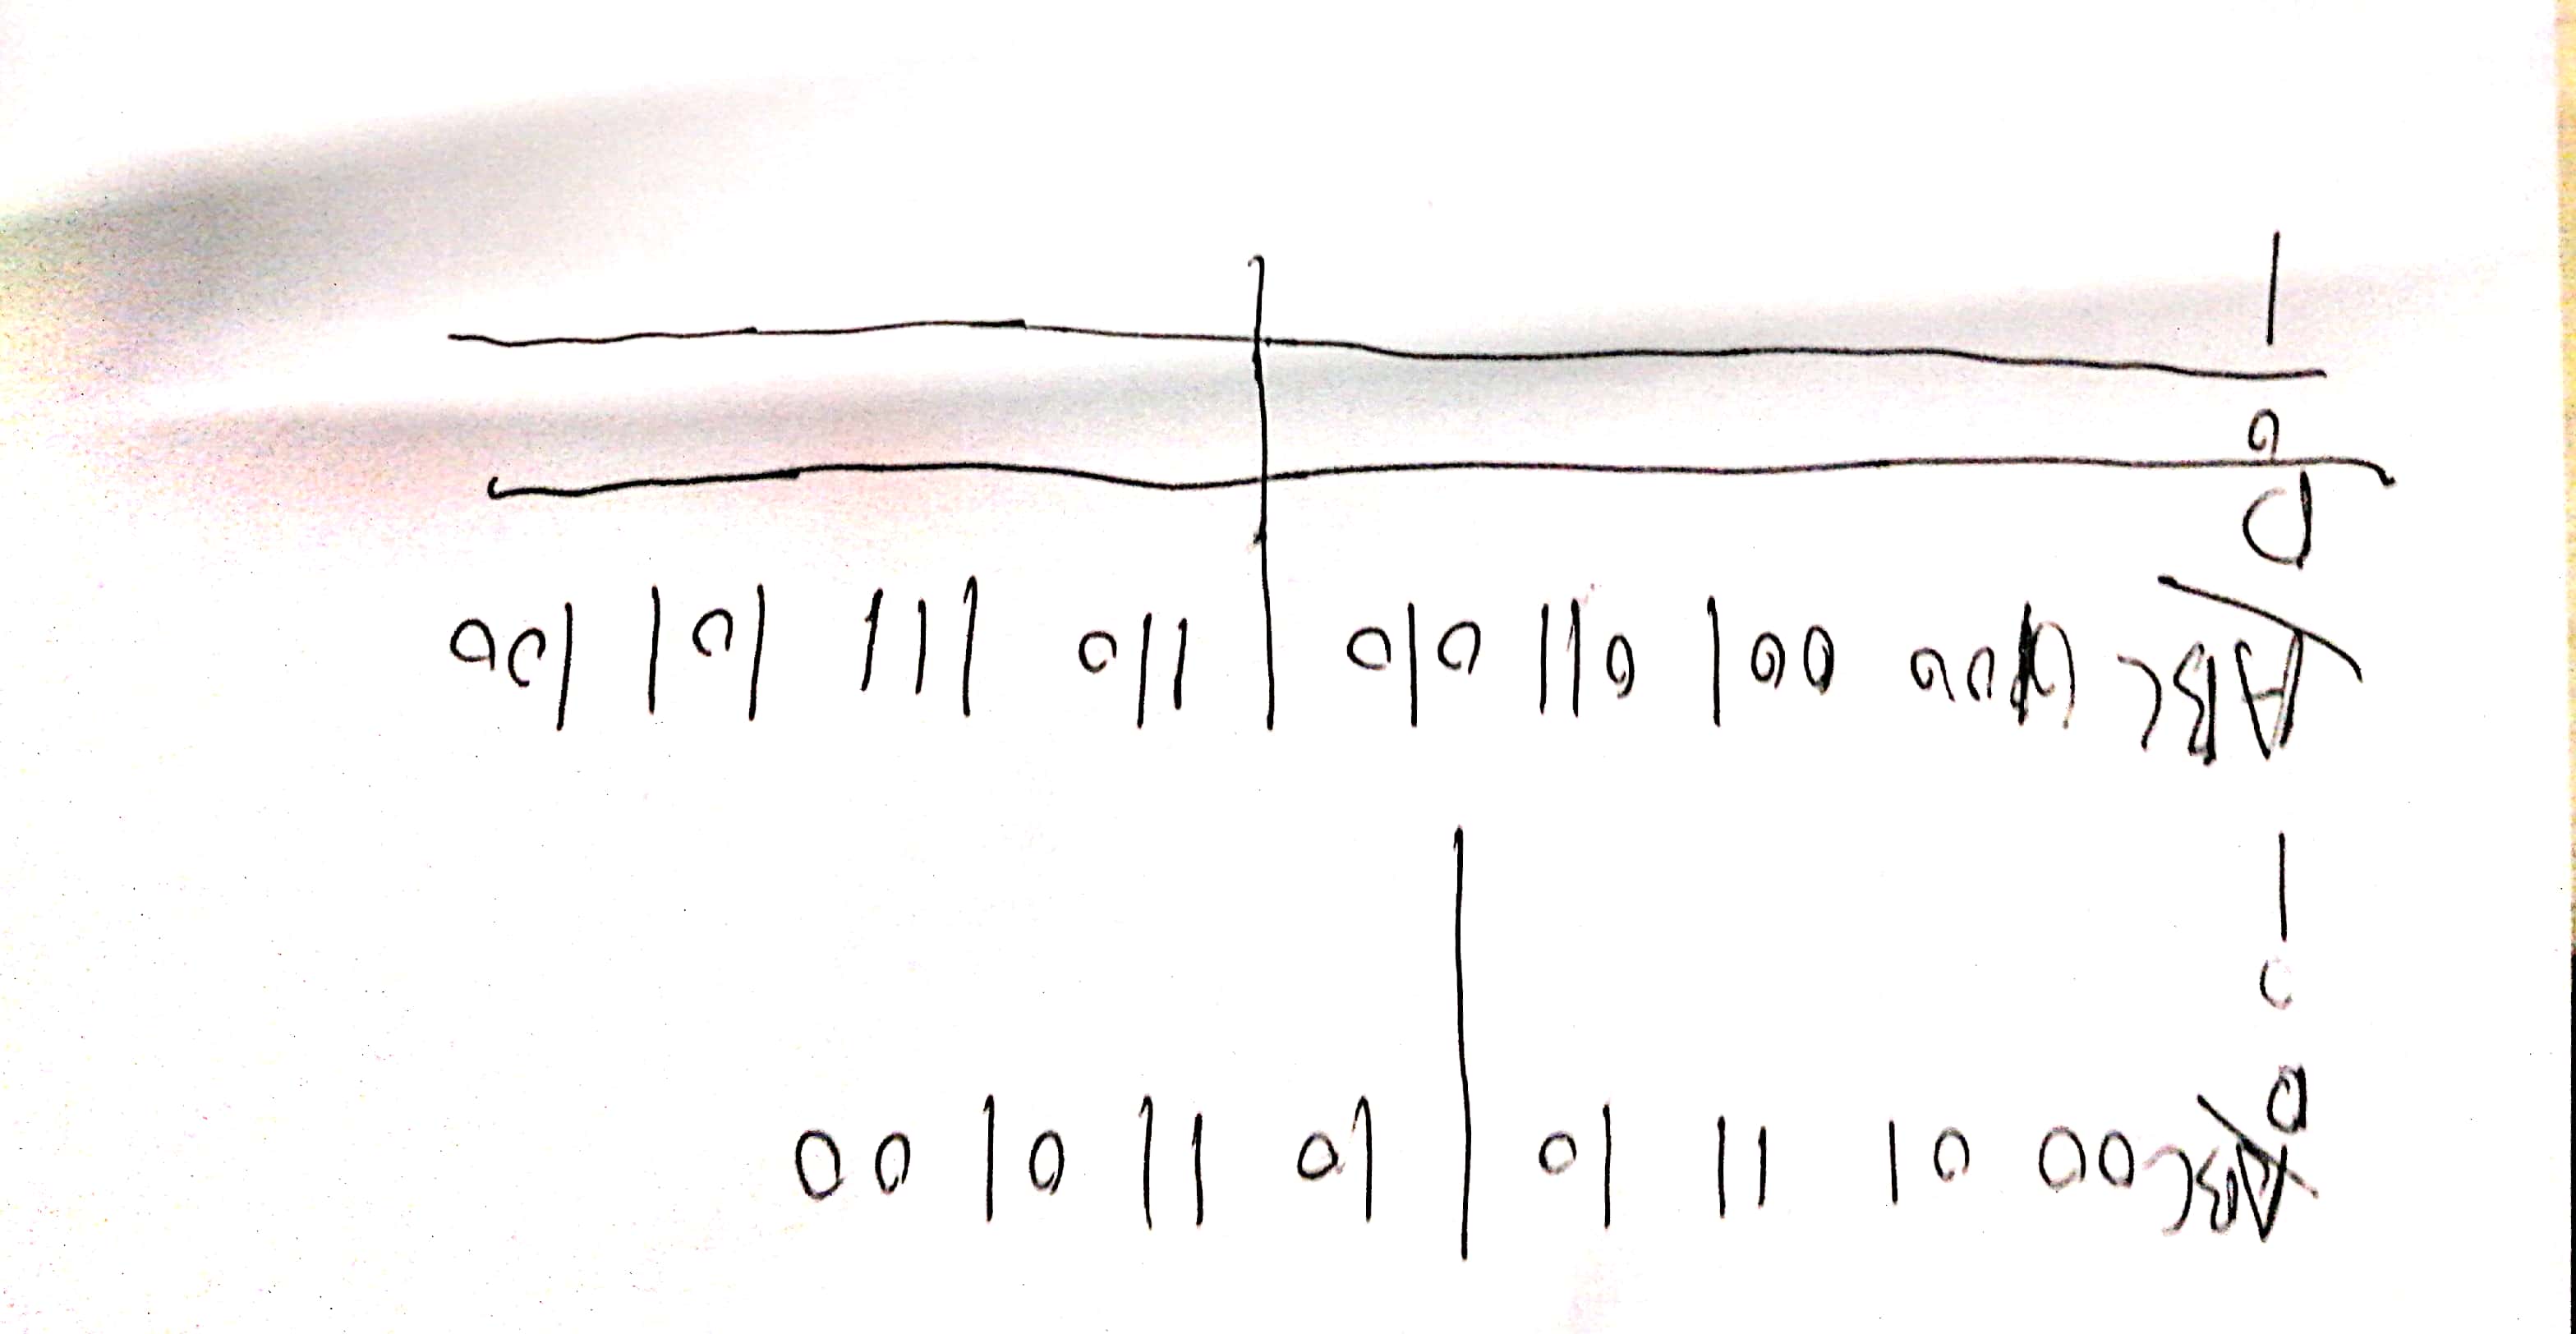 ABC 00 01 11 10 | 10 11 01 00
D
0
1
ABC 000 001 011 010 | 110 111 101 100
D
0
1